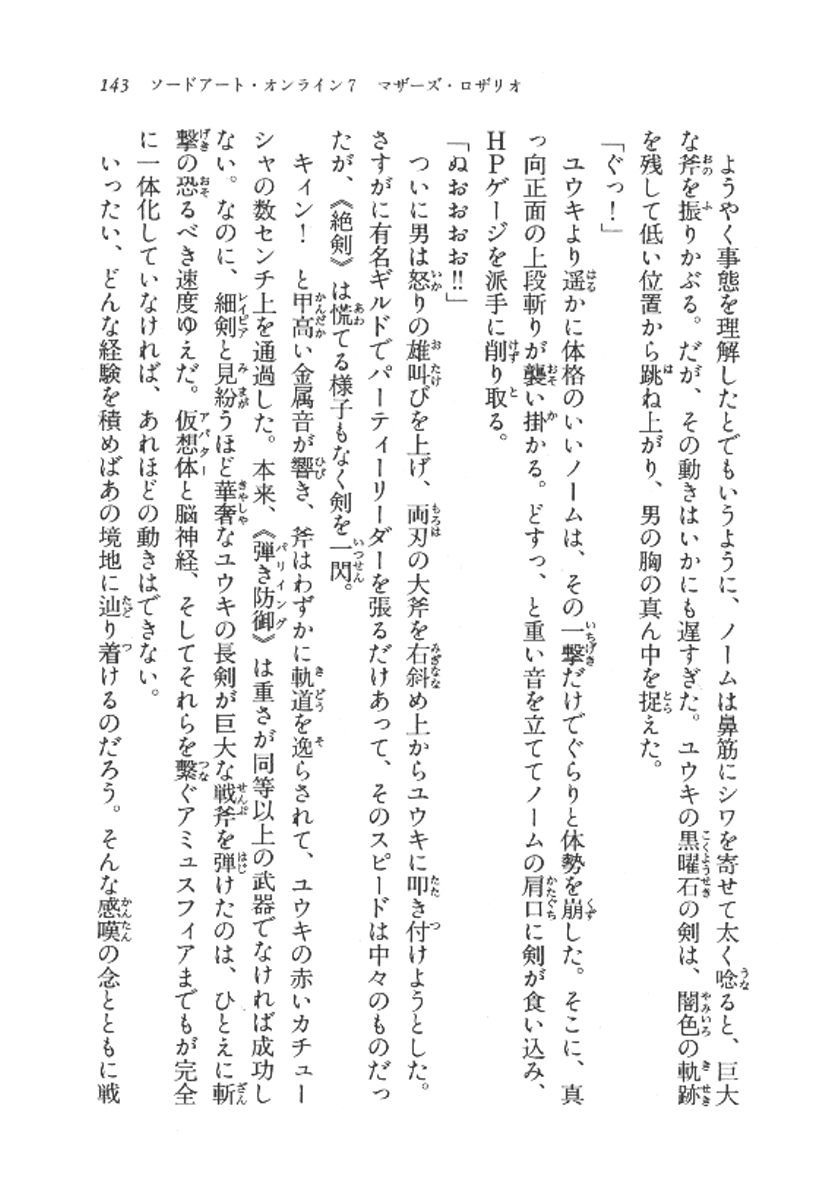 143　ソードアート・オンライン7　マザーズ・ロザリオ
　ようやく事態を理解したとでもいうように、ノームは鼻筋にシワを寄せて太く唸ると、巨大
な斧を振りかぶる。だが、その動きはいかにも遅すぎた。ユウキの黒曜石の剣は、闇色の軌跡
を残して低い位置から跳ね上がり、男の胸の真ん中を捉えた。
「ぐっ！」
　ユウキより遥かに体格のいいノームは、その一撃だけでぐらりと体勢を崩した。そこに、真
っ向正面の上段斬りが襲い掛かる。どすっ、と重い音を立ててノームの肩口に剣が食い込み、
ＨＰゲージを派手に削り取る。
「ぬぉおおお!!」
　ついに男は怒りの雄叫びを上げ、両刃の大斧を右斜め上からユウキに叩き付けようとした。
さすがに有名ギルドでパーティーリーダーを張るだけあって、そのスピードは中々のものだっ
たが、《絶剣》は慌てる様子もなく剣を一閃。
　キィン！　と甲高い金属音が響き、斧はわずかに軌道を逸らされて、ユウキの赤いカチュー
シャの数センチ上を通過した。本来、《弾き防御》は重さが同等以上の武器でなければ成功し
ない。なのに、細剣と見紛うほど華奢なユウキの長剣が巨大な戦斧を弾けたのは、ひとえに斬
撃の恐るべき速度ゆえだ。仮想体と脳神経、そしてそれらを繋ぐアミュスフィアまでもが完全
に一体化していなければ、あれほどの動きはできない。
　いったい、どんな経験を積めばあの境地に辿り着けるのだろう。そんな感嘆の念とともに戦